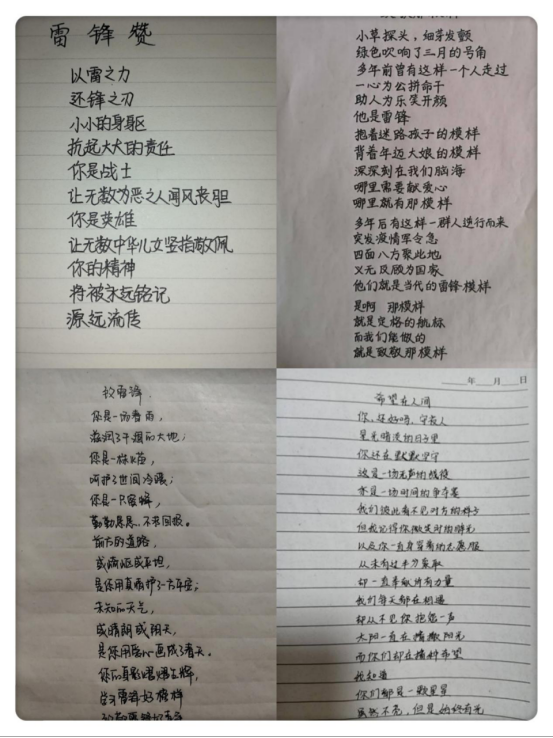 雷锋赞
以雷之力
还锋之刃
小小的身躯
抗起大大的责任
你是战士
让无数为恶之人闻风丧胆
你是英雄
让无数中华儿女竖指敬佩
你的精神
将被永远铭记
源远流传
小草探头,细芽发颤
绿色吹响了三月的号角
多年前曾有这样一个人走过
一心为公拼命干
助人为乐笑开颜
他是雷锋
抱着迷路孩子的模样
背着年迈大娘的模样
深深刻在我们脑海
哪里需要献爱心
哪里就有那模样
多年后有这样一群人逆行而来
突发疫情军令急
四面八方聚此地
义无反顾为国家
他们就是当代的雷锋模样
是啊 那模样
就是定格的航标
而我们能做的
就是致敬那模样
致雷锋
你是一场春雨,
滋润了干涸的大地;
你是一株
呵护了世间冷暖;
你是一只蜜蜂,
勤勤恳恳…不求回报。
前方的道路,
或崎岖或平坦,
是你用真情护了一方平安;
未知的天气,
或晴朗或阴天,
是你用恒心画成了晴天。
你的身影熠熠生辉,
皆为雷锋好榜样
年 月 日
希望在人间
你,还好吗,守夜人
星光暗淡的日子里
你还在默默坚守
这是一场无声的战役
亦是一场时间的争夺赛
我们彼此看不见对方的样子
但我记得你微笑时的眸光
以及你一直身穿着的志愿服
从未有过半分索取
却一直奉献所有力量
我们每天都在相遇
却从不见你抱怨一声
太阳一直在播撒阳光
而你们却在播种希望
我知道
你们都是一颗星星
虽然不亮,但是始终有光